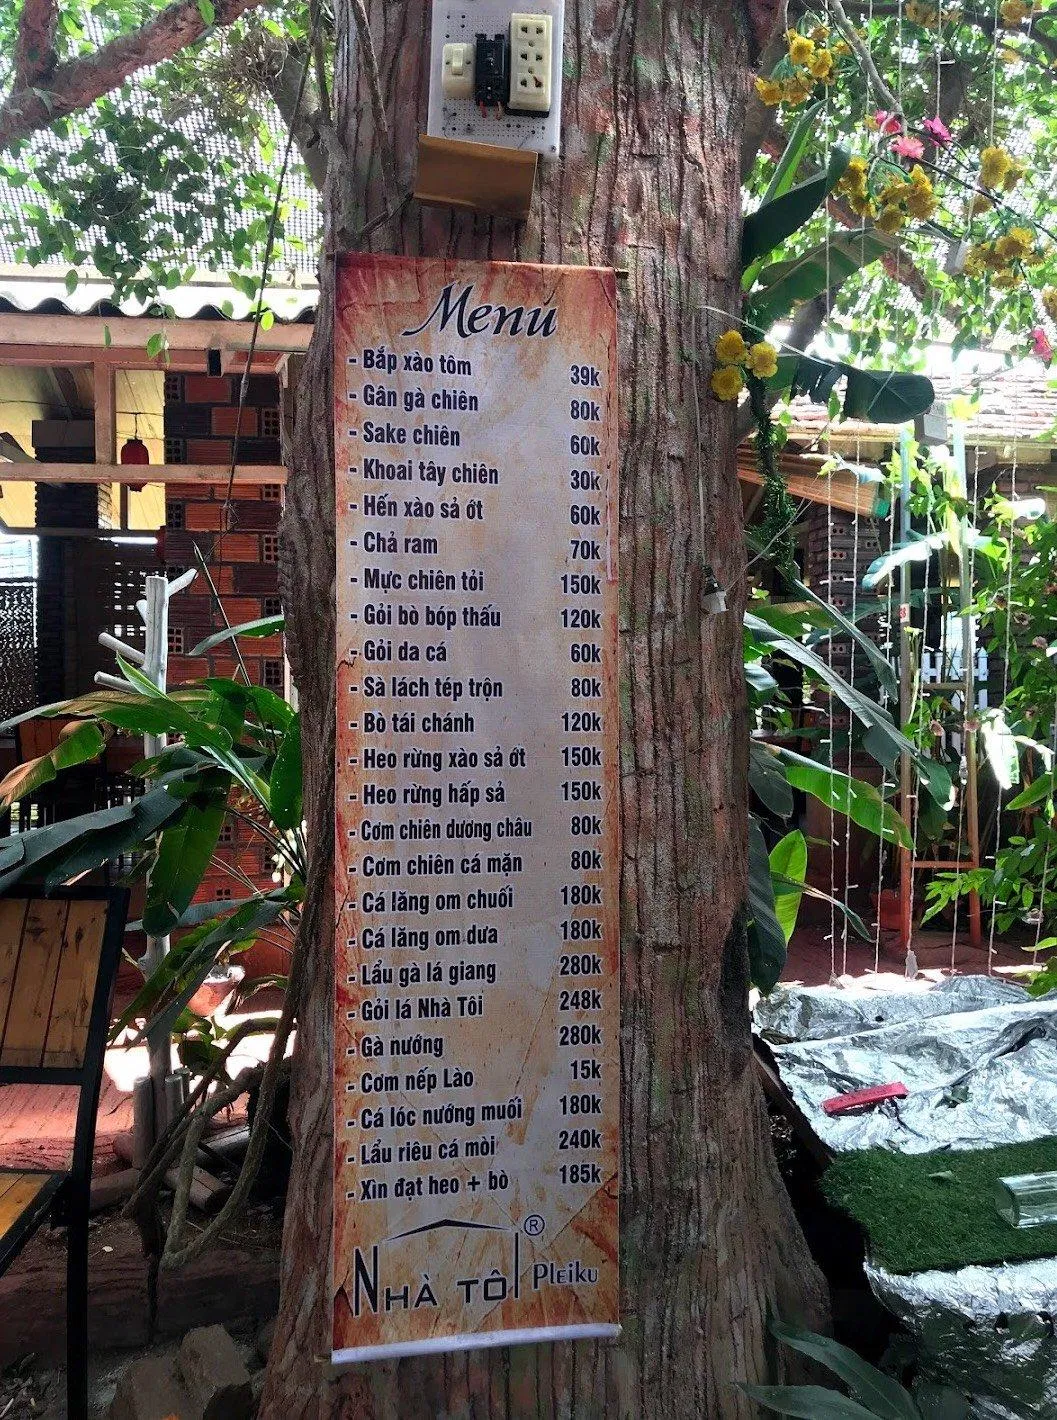 Menu
- Bắp xào tôm 39k
- Gân gà chiên 80k
- Sake chiên 60k
- Khoai tây chiên 30k
- Hến xào sả ớt 60k
- Chả ram 70k
- Mực chiên tỏi 150k
- Gỏi bò bóp thấu 120k
- Gỏi da cá 60k
- Sà lách tép trộn 80k
- Bò tái chánh 120k
- Heo rừng xào sả ớt 150k
- Heo rừng hấp sả 150k
- Cơm chiên dương châu 80k
- Cơm chiên cá mặn 80k
- Cá lăng om chuối 180k
- Cá lăng om dưa 180k
- Lẩu gà lá giang 280k
- Gỏi lá Nhà Tôi 248k
- Gà nướng 280k
- Cơm nếp Lào 15k
- Cá lóc nướng muối 180k
- Lẩu riêu cá mòi 240k
- Xìn đạt heo + bò 185k
NHÀ TÔI ® Pleiku